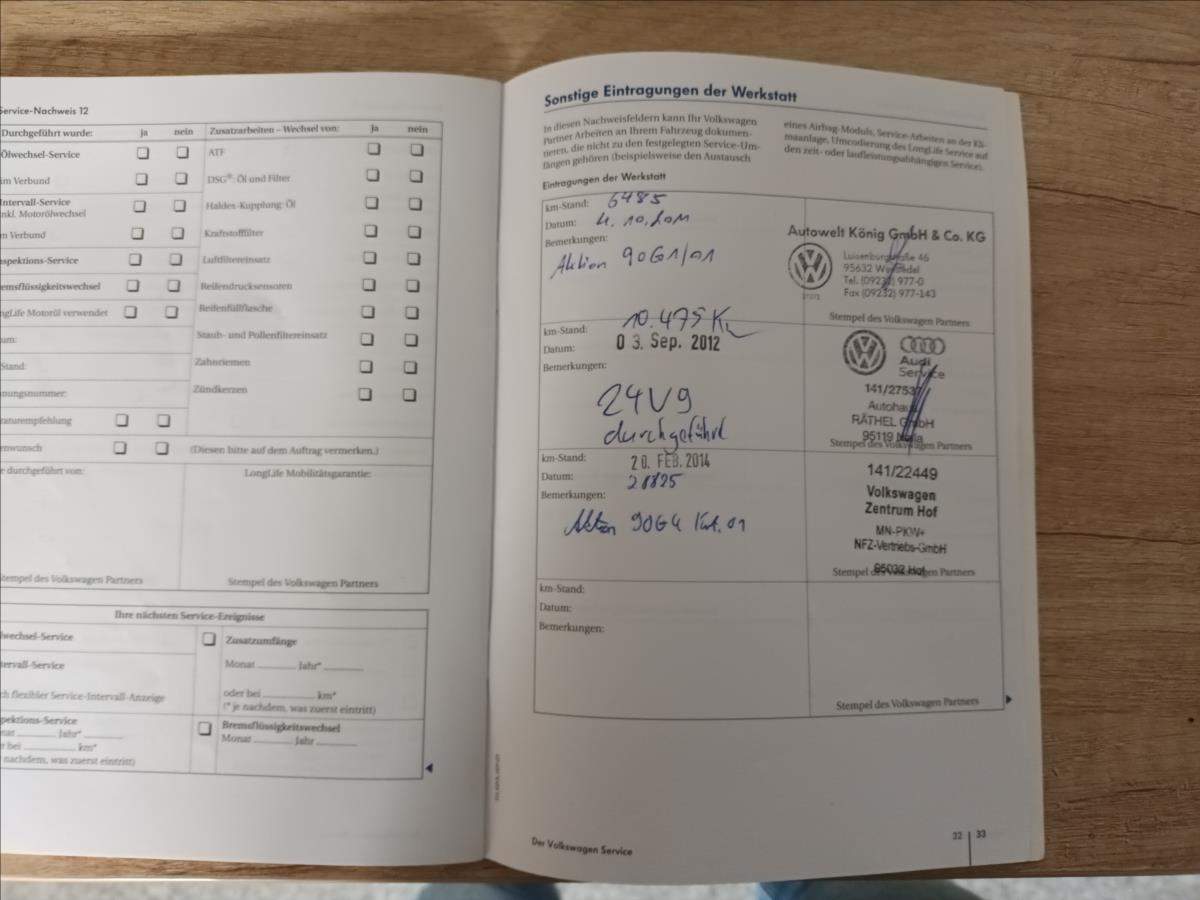 Service-Nachweis 12
Durchgeführt wurde: ja nein
Ölwechsel-Service
im Verbund
Intervall-Service
inkl. Motorölwechsel
im Verbund
spektions-Service
emsflüssigkeitswechsel
ngLife Motoröl verwendet
um:
Stand:
nungsnummer:
araturempfehlung
enwunsch
Zusatzarbeiten – Wechsel von: ja nein
ATF
DSG®: Öl und Filter
Haldex-Kupplung: Öl
Kraftstofffilter
Luftfiltereinsatz
Reifendrucksensoren
Reifenfüllflasche
Staub- und Pollenfiltereinsatz
Zahnriemen
Zündkerzen
(Diesen bitte auf dem Auftrag vermerken.)
e durchgeführt von:
LongLife Mobilitätsgarantie:
Stempel des Volkswagen Partners
Stempel des Volkswagen Partners
Ihre nächsten Service-Ereignisse
lwechsel-Service
tervall-Service
ch flexibler Service-Intervall-Anzeige
pektions-Service
nat Jahr*
r bei km*
nachdem, was zuerst eintritt)
Zusatzumfänge
Monat Jahr*
oder bei km*
(* je nachdem, was zuerst eintritt)
Bremsflüssigkeitswechsel
Monat Jahr
Sonstige Eintragungen der Werkstatt
In diesen Nachweisfeldern kann Ihr Volkswagen
Partner Arbeiten an Ihrem Fahrzeug dokumen-
tieren, die nicht zu den festgelegten Service-Um-
fängen gehören (beispielsweise den Austausch
eines Airbag-Moduls, Service-Arbeiten an der Kli-
maanlage, Umcodierung des LongLife Service auf
den zeit- oder laufleistungsabhängigen Service).
Eintragungen der Werkstatt
km-Stand: 6485
Datum: 4.10.2011
Bemerkungen:
Aktion 90G1/01
Autowelt König GmbH & Co. KG
Luisenburgstraße 46
95632 Wunsiedel
Tel. (09232) 977-0
Fax (09232) 977-143
Stempel des Volkswagen Partners
km-Stand: 10.475 Km
Datum: 03. Sep. 2012
Bemerkungen:
24V9
durchgeführt
Audi
Service
141/27537
Autohaus
RÄTHEL GmbH
95119 Naila
Stempel des Volkswagen Partners
km-Stand: 20. FEB. 2014
Datum: 21825
Bemerkungen:
Aktion 90G4 Krit. 01
141/22449
Volkswagen
Zentrum Hof
MN-PKW+
NFZ-Vertriebs-GmbH
95032 Hof
Stempel des Volkswagen Partners
km-Stand:
Datum:
Bemerkungen:
Stempel des Volkswagen Partners
Der Volkswagen Service
32 33